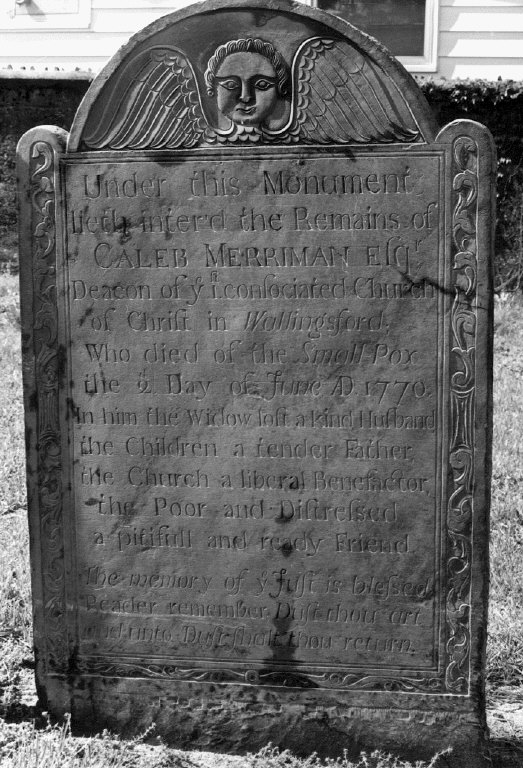 Under this Monument
lieth inter'd the Remains of
CALEB MERRIMAN Esqr.
Deacon of ye 1st. consociated Church
of Chriſt in Wallingsford,
Who died of the Small Pox
the 2d. Day of June AD. 1770.
In him the Widow loſt a kind Huſband
the Children a tender Father,
the Church a liberal Benefactor,
the Poor and Diſtreſsed
a pitifull and ready Friend.
The memory of ye Juſt is bleſsed
Reader remember, Duſt thou art
and unto Duſt ſhalt thou return.